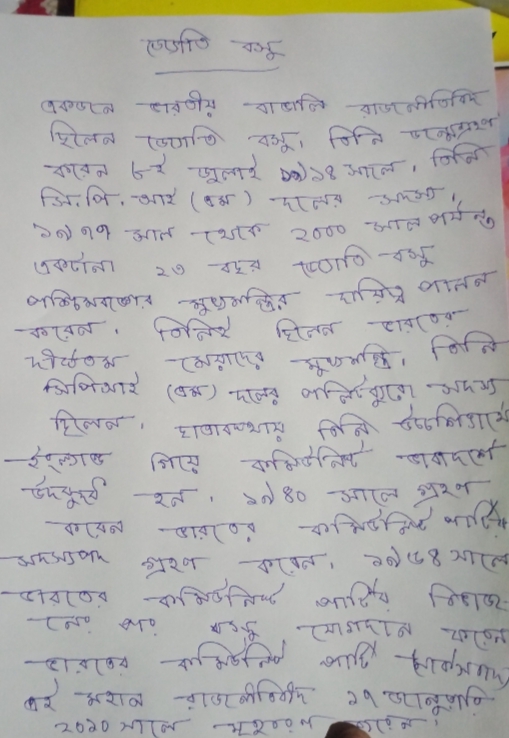 জ্যোতি বসু
একজন ভারতীয় বাঙালি রাজনীতিবিদ
ছিলেন জ্যোতি বসু। তিনি জন্মগ্রহণ
করেন ৮ই জুলাই ১৯১৪ সালে। তিনি
সি.পি.আই (এম) দলের সদস্য।
১৯৭৭ সাল থেকে ২০০০ সাল পর্যন্ত
একটানা ২৩ বছর জ্যোতি বসু
পশ্চিমবঙ্গের মুখ্যমন্ত্রির দায়িত্ব পালন
করেন। তিনিই ছিলেন ভারতের
দীর্ঘতম মেয়াদের মুখ্যমন্ত্রি। তিনি
সিপিআই (এম) দলের পলিটব্যুরো সদস্য
ছিলেন। ছাত্রাবস্থায় তিনি উচ্চশিক্ষার্থে
ইংল্যান্ডে গিয়ে কমিউনিস্ট ভাবাদর্শে
উদবুদ্ধ হন। ১৯৪০ সালে গ্রহণ
করেন ভারতের কমিউনিস্ট পার্টির
সদস্যপদ গ্রহণ করেন। ১৯৬৪ সালে
ভারতের কমিউনিস্ট পার্টির বিভাজ-
নের পর বসু যোগদান করেন
ভারতের কমিউনিস্ট পার্টি মার্কসবাদ
এই মহান রাজনীতিবিদ ১৭ জানুয়ারি
২০১০ সালে মৃত্যুবরণ করেন।